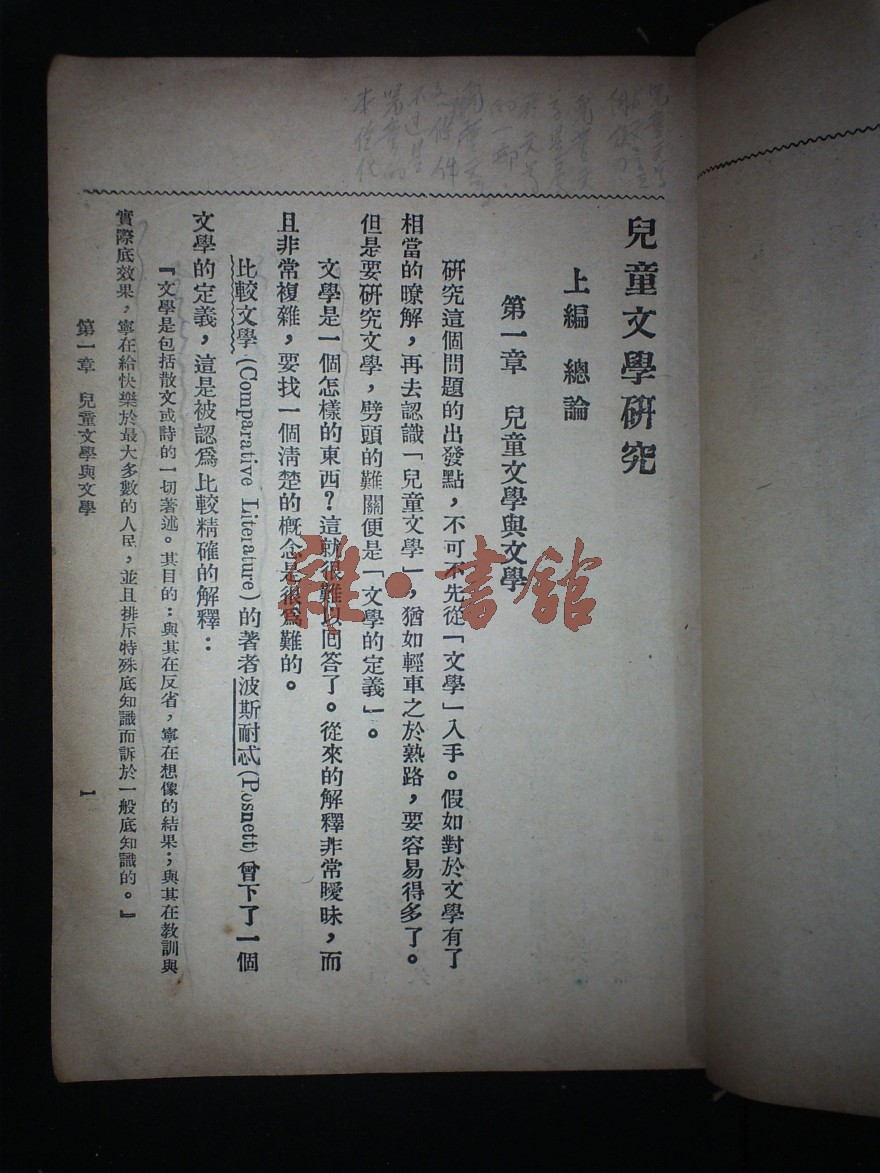 兒童文學研究
上編 總論
第一章 兒童文學與文學
研究這個問題的出發點，不可不先從「文學」入手。假如對於文學有了
相當的瞭解，再去認識「兒童文學」，猶如輕車之於熟路，要容易得多了。
但是要研究文學，劈頭的難關便是「文學的定義」。
文學是一個怎樣的東西？這就很難以回答了。從來的解釋非常曖昧，而
且非常複雜，要找一個清楚的概念是很爲難的。
比較文學 (Comparative Literature) 的著者波斯耐忒(Posnett) 曾下了一個
文學的定義，這是被認爲比較精確的解釋：
『文學是包括散文或詩的一切著述。其目的：與其在反省，寧在想像的結果；與其在教訓與
實際底效果，寧在給快樂於最大多數的人民，並且排斥特殊底知識而訴於一般底知識的。』
第一章 兒童文學與文學
1
雜·書館